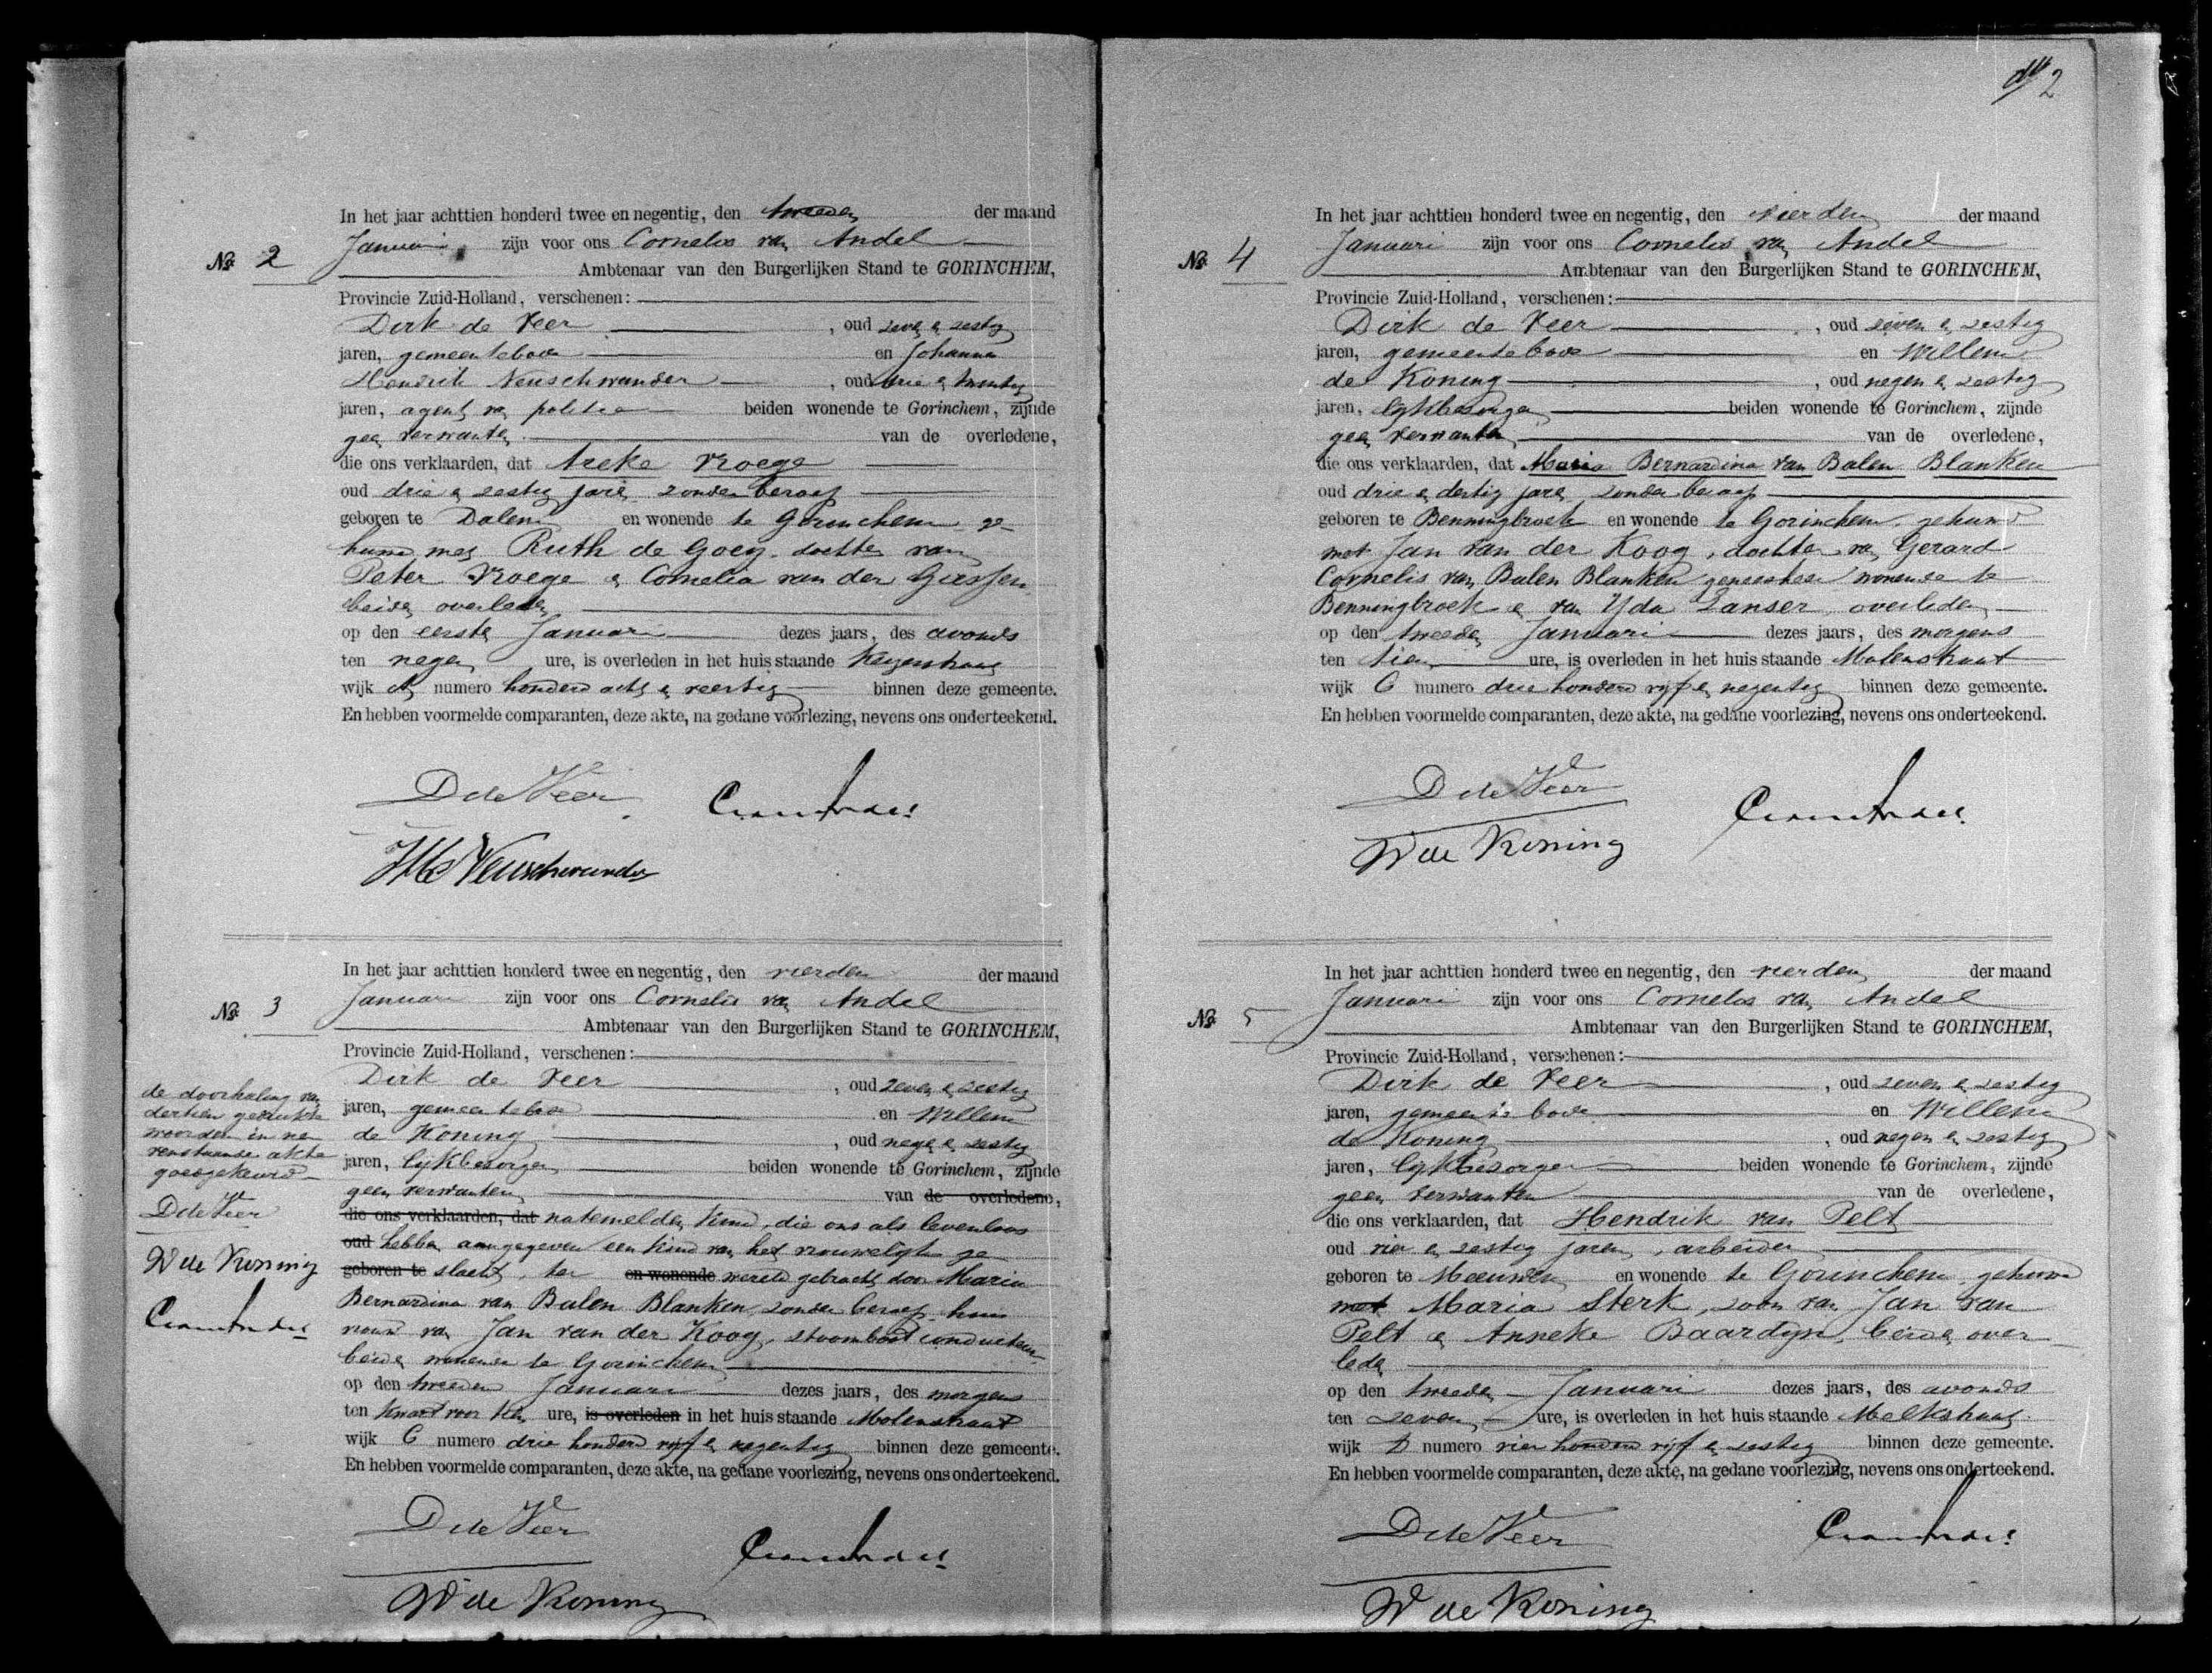 In het jaar achttien honderd twee en negentig, den tweeden der maand
Januari zijn voor ons Cornelis van Andel
No. 2
Ambtenaar van den Burgerlijken Stand te GORINCHEM,
Provincie Zuid-Holland, verschenen:
Dirk de Veer, oud zeven en zestig
jaren, gemeentebode en Johannes
Hendrik Neuschwander, oud drie en twintig
jaren, agent van politie beiden wonende te Gorinchem, zijnde
geen verwanten van de overledene,
die ons verklaarden, dat Areke Vroege
oud drie en zestig jaren zonder beroep
geboren te Dalem en wonende te Gorinchem ge-
huwd met Ruth de Goey, dochter van
Peter Vroege en Cornelia van der Giessen
beiden overleden
op den eersten Januari dezes jaars, des avonds
ten negen ure, is overleden in het huis staande Keizerstraat
wijk A numero honderd acht en veertig binnen deze gemeente.
En hebben voormelde comparanten, deze akte, na gedane voorlezing, nevens ons onderteekend.
D de Veer
C van Andel
JH Neuschwander
In het jaar achttien honderd twee en negentig, den vierden der maand
Januari zijn voor ons Cornelis van Andel
No. 3
Ambtenaar van den Burgerlijken Stand te GORINCHEM,
Provincie Zuid-Holland, verschenen:
Dirk de Veer, oud zeven en zestig
jaren, gemeentebode en Willem
de Koning, oud negen en zestig
jaren, lijkbezorger beiden wonende te Gorinchem, zijnde
geen verwanten van de overledene,
die ons verklaarden, dat natemelden kind, die ons als levenloos
oud hebben aangegeven een kind van het vrouwelijk ge
geboren te slacht, ter en wonende wereld gebracht door Maria
Bernardina van Balen Blanken, zonder beroep huis
vrouw van Jan van der Koog, stoomboot conducteur
beiden wonende te Gorinchem
op den tweeden Januari dezes jaars, des morgens
ten kwart voor tien ure, is overleden in het huis staande Molenstraat
wijk C numero drie honderd vijf en negentig binnen deze gemeente.
En hebben voormelde comparanten, deze akte, na gedane voorlezing, nevens ons onderteekend.
D de Veer
C van Andel
W de Koning
de doorhaling van
dertien gedrukte
woorden in ne
venstaande akte
goedgekeurd
D de Veer
W de Koning
C van Andel
2
In het jaar achttien honderd twee en negentig, den vierden der maand
Januari zijn voor ons Cornelis van Andel
No. 4
Ambtenaar van den Burgerlijken Stand te GORINCHEM,
Provincie Zuid-Holland, verschenen:
Dirk de Veer, oud zeven en zestig
jaren, gemeentebode en Willem
de Koning, oud negen en zestig
jaren, lijkbezorger beiden wonende te Gorinchem, zijnde
geen verwanten van de overledene,
die ons verklaarden, dat Maria Bernardina van Balen Blanken
oud drie en dertig jaren, zonder beroep
geboren te Benningbroek en wonende te Gorinchem, gehuwd
met Jan van der Koog, dochter van Gerard
Cornelis van Balen Blanken geneesheer wonende te
Benningbroek en van Yda Lanser overleden
op den tweeden Januari dezes jaars, des morgens
ten tien ure, is overleden in het huis staande Molenstraat
wijk C numero drie honderd vijf en negentig binnen deze gemeente.
En hebben voormelde comparanten, deze akte, na gedane voorlezing, nevens ons onderteekend.
D de Veer
C van Andel
W de Koning
In het jaar achttien honderd twee en negentig, den vierden der maand
Januari zijn voor ons Cornelis van Andel
No. 5
Ambtenaar van den Burgerlijken Stand te GORINCHEM,
Provincie Zuid-Holland, verschenen:
Dirk de Veer, oud zeven en zestig
jaren, gemeentebode en Willem
de Koning, oud negen en zestig
jaren, lijkbezorger beiden wonende te Gorinchem, zijnde
geen verwanten van de overledene,
die ons verklaarden, dat Hendrik van Pelt
oud vier en zestig jaren, arbeider
geboren te Meeuwen en wonende te Gorinchem, gehuwd
met Maria Sterk, zoon van Jan van
Pelt en Anneke Baardyn, beiden over
leden
op den tweeden Januari dezes jaars, des avonds
ten zeven ure, is overleden in het huis staande Melkstraat
wijk D numero vier honderd vijf en zestig binnen deze gemeente.
En hebben voormelde comparanten, deze akte, na gedane voorlezing, nevens ons onderteekend.
D de Veer
C van Andel
W de Koning